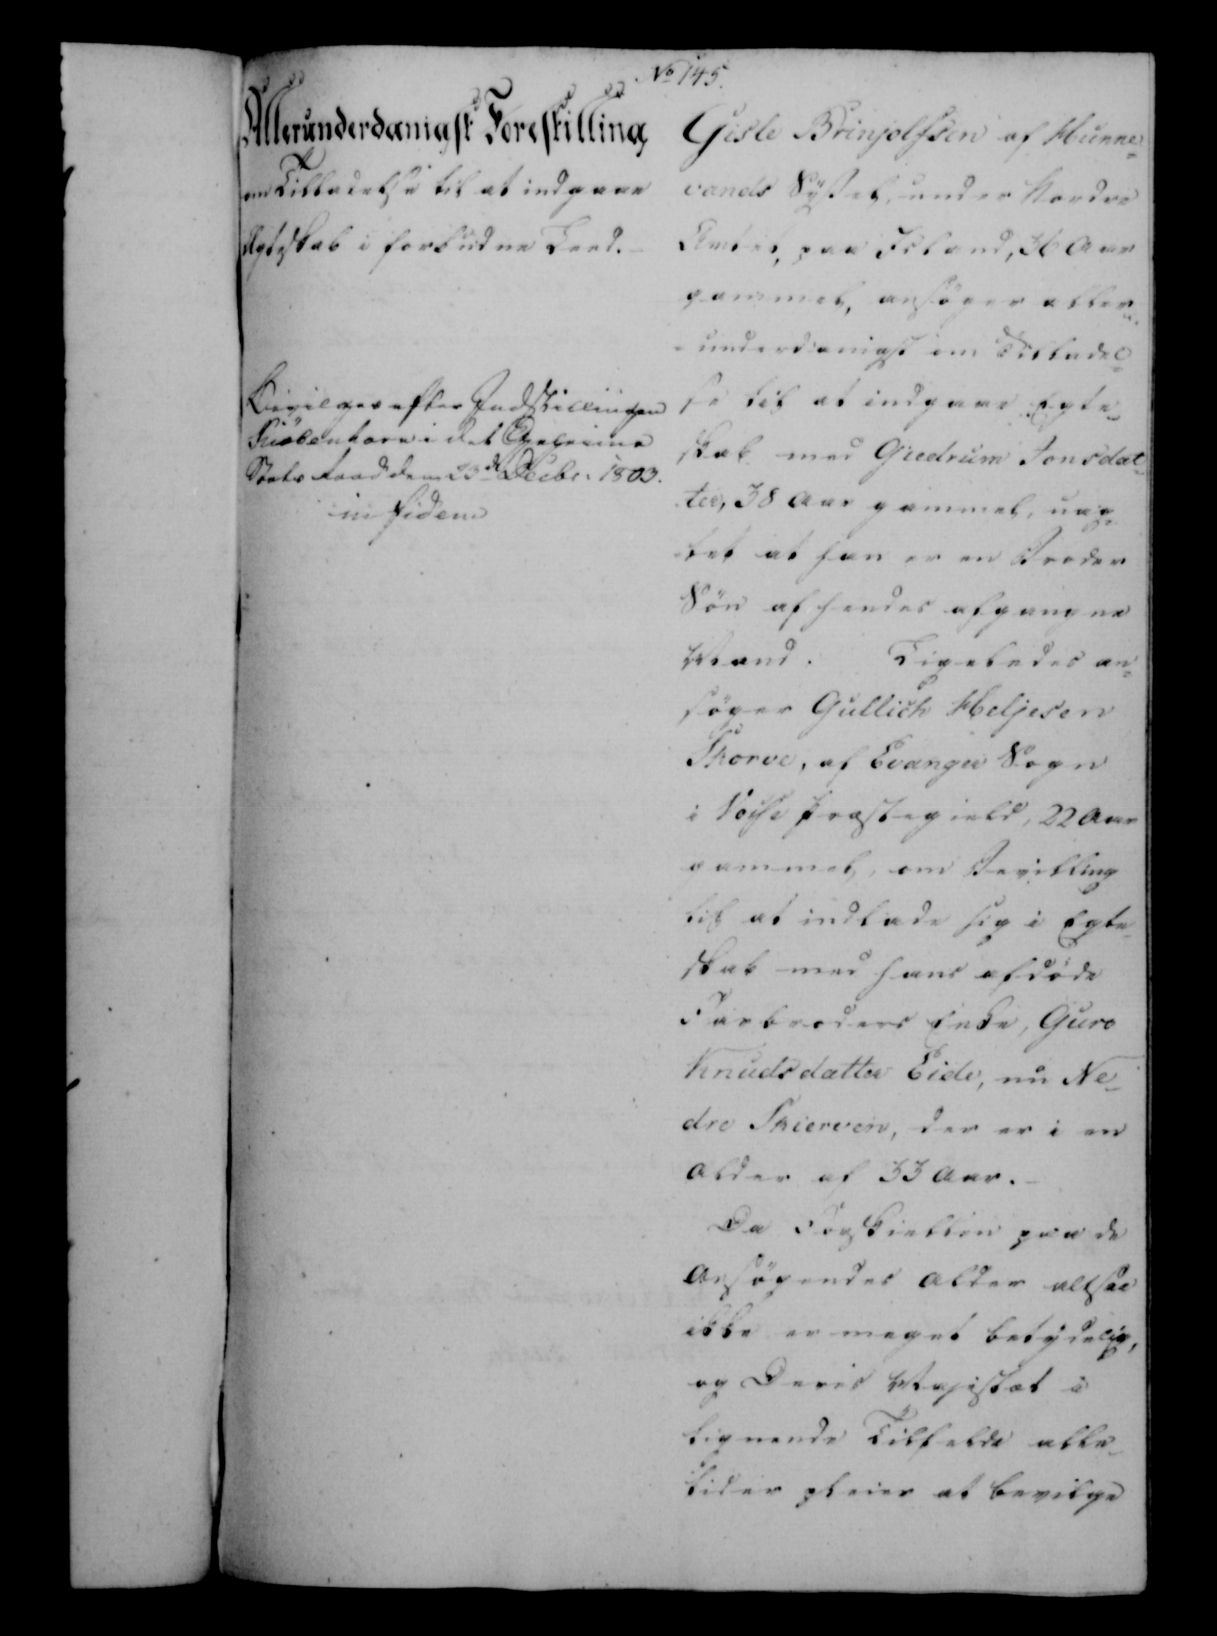 No 145.
Allerunderdanigst Forestilling
om Tilladelse til at indgaae
Ægteskab i forbudne Leed.
Bevilges efter Indstillingen
Kiøbenhavn i det Geheime
Stats Raad den 23de Decbr. 1803.
in fidem
Gisle Brinjolfsen af Hunne-
vands Syssel, under Nordre
Amtet, paa Island, 36 Aar
gammel, ansøger aller-
underdanigst om Tilladel-
se til at indgaae Egte-
skab med Giedrum Jonsdat-
ter, 38 Aar gammel, uag-
tet at han er en Broder
Søn af hendes afgangne
Mand. Ligeledes an-
søger Gullich Heljesen
Skorve, af Evanger Sogn
i Vosse Præstegield, 22 Aar
gammel, om Bevilling
til at indlade sig i Egte-
skab med hans afdøde
Farbroders Enke, Guro
Knudsdatter Eide, nu Ne-
dre Skierven, der er i en
Alder af 33 Aar.
Da Forskiellen paa de
Ansøgendes Alder altsaa
ikke er meget betydelig,
og Deres Majestæt i
lignende Tilfælde alle-
tider pleier at bevilge